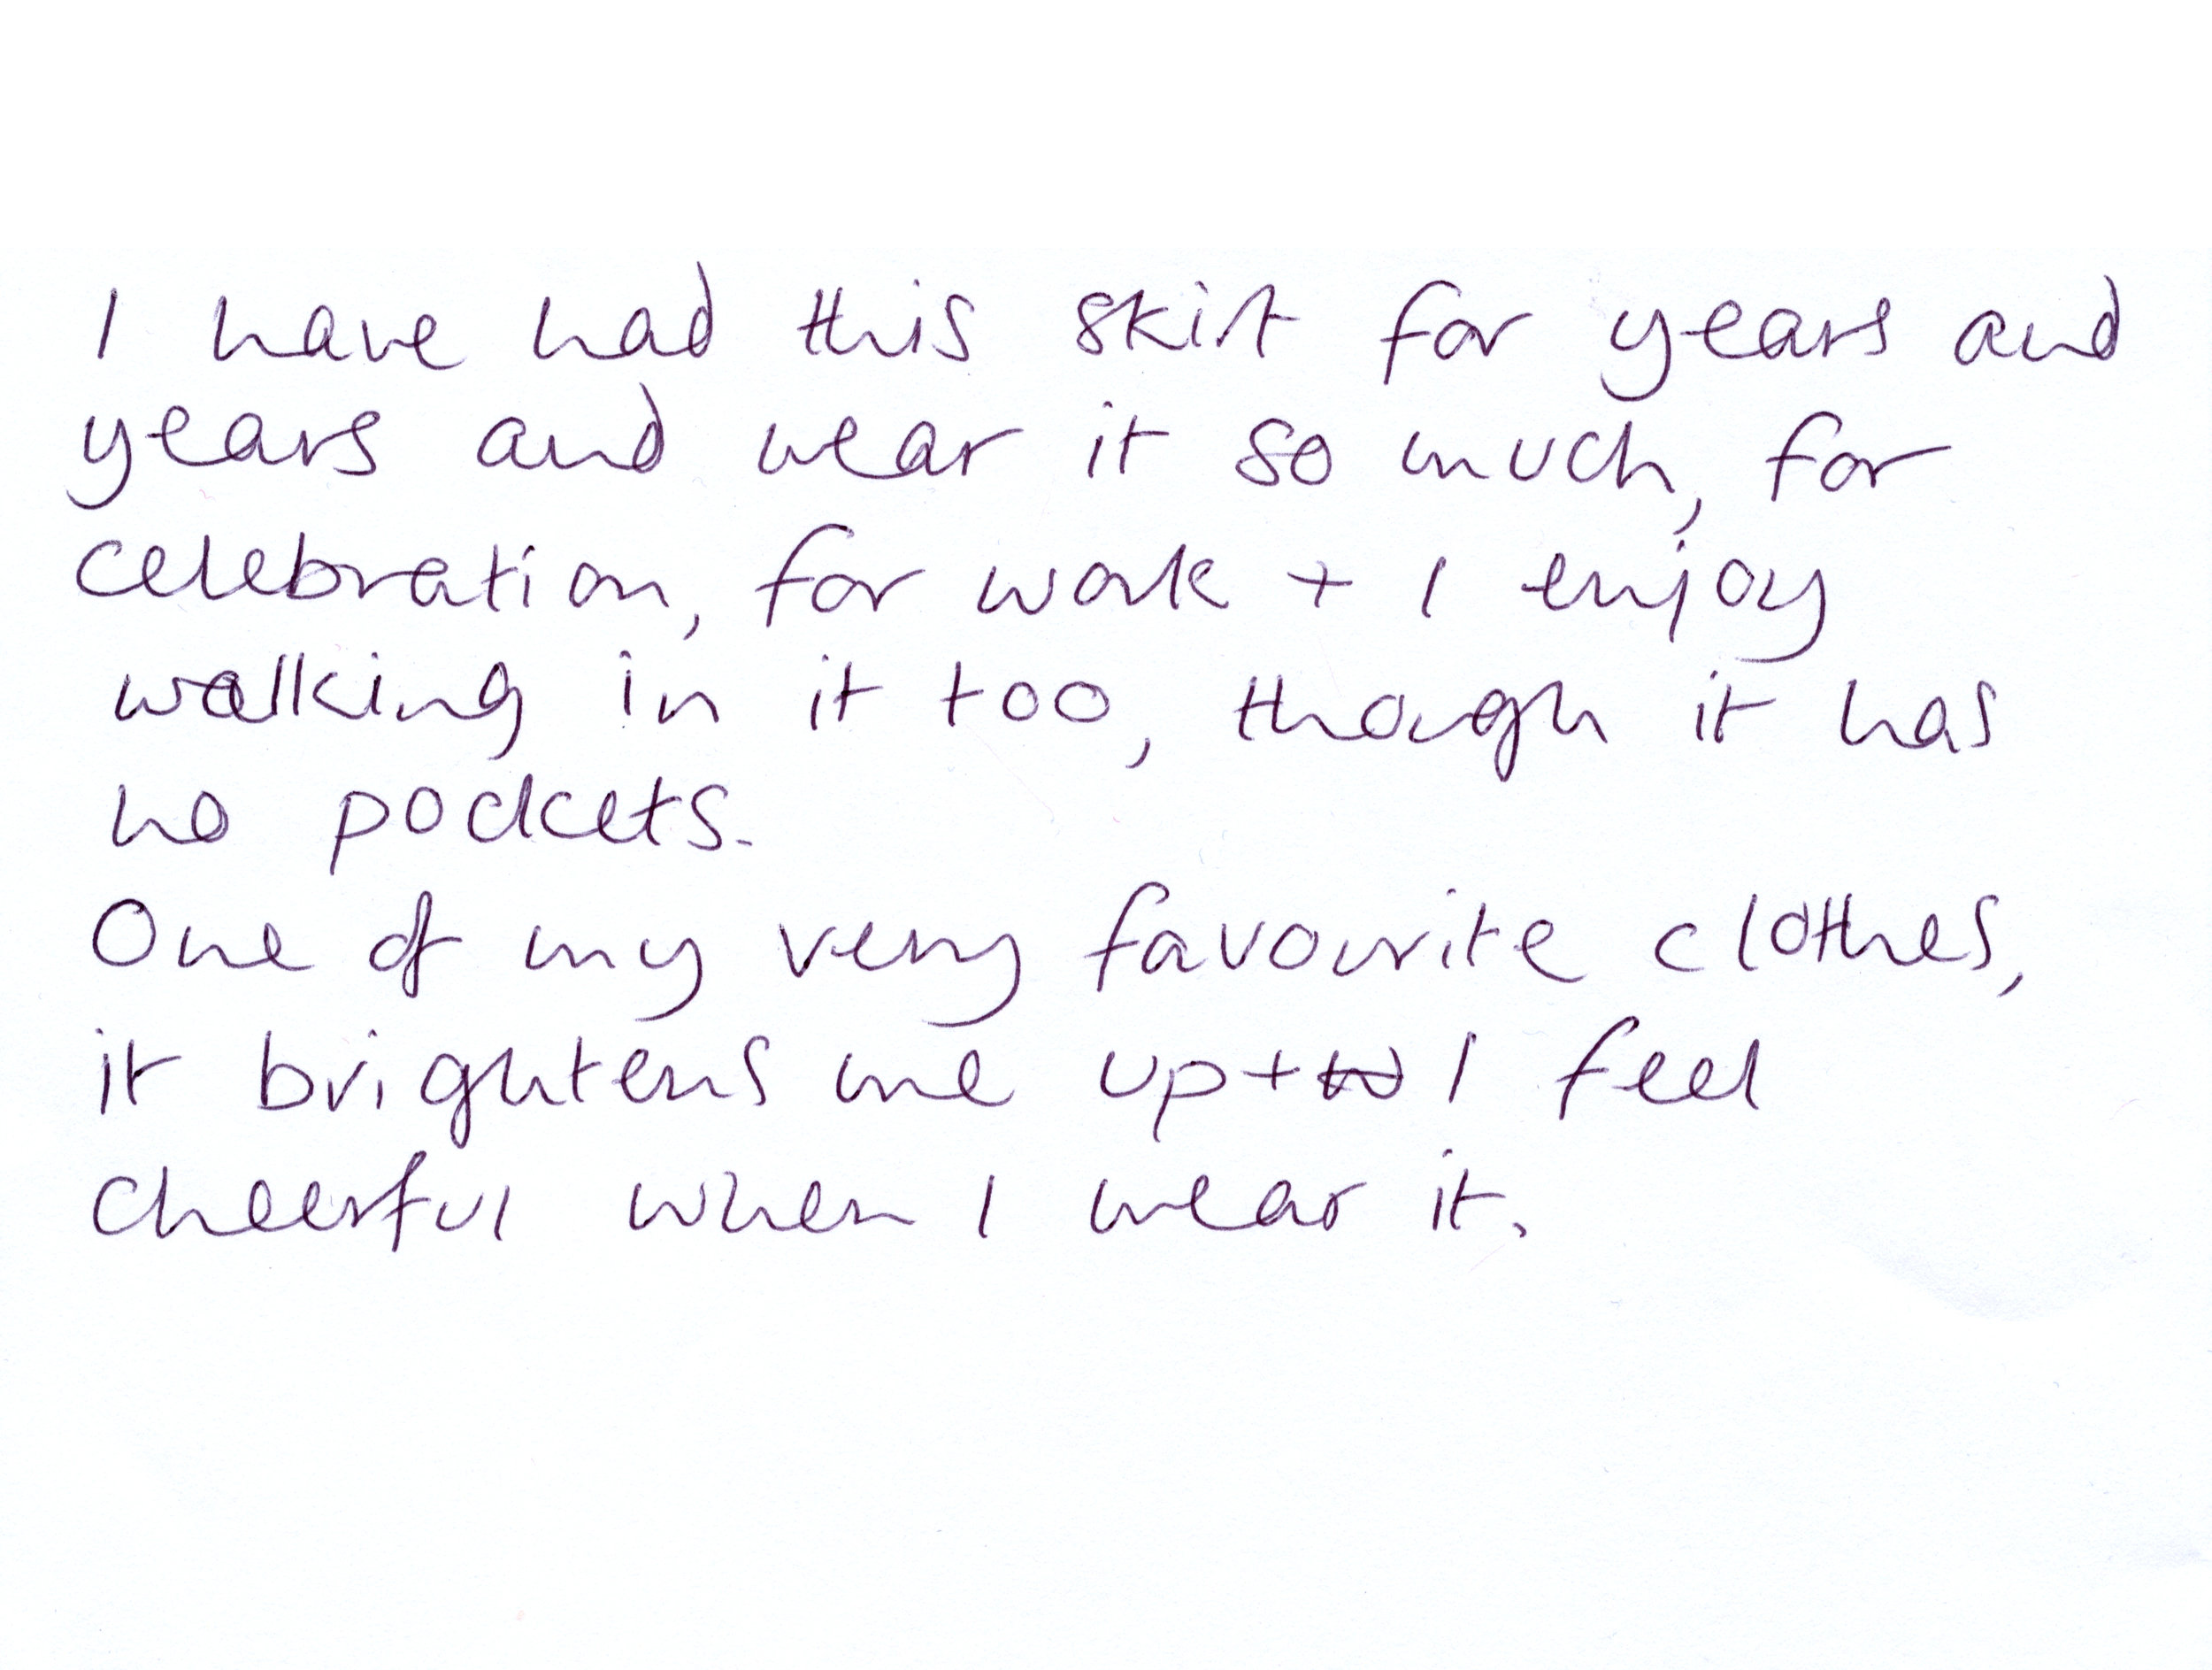 I have had this skirt for years and
years and wear it so much, for
celebration, for work + I enjoy
walking in it too, though it has
no pockets.
One of my very favourite clothes,
it brightens me up + I feel
cheerful when I wear it.